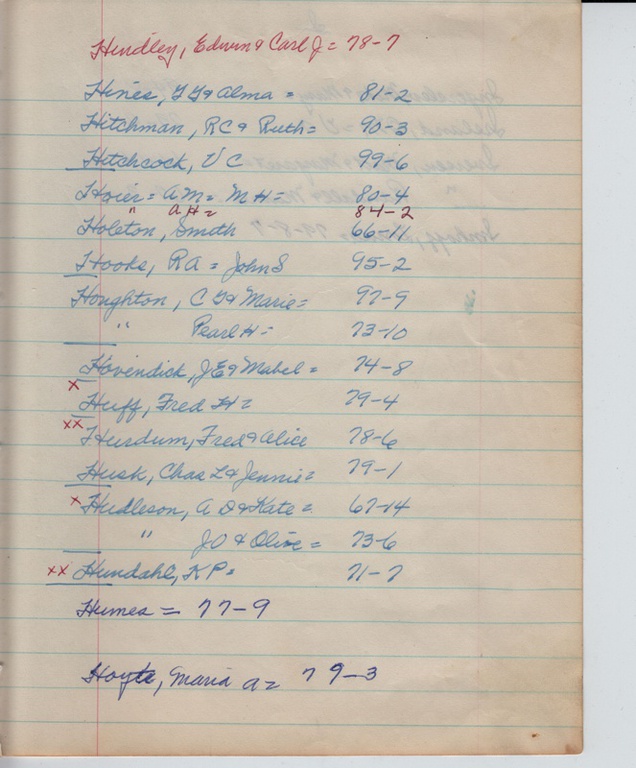 Hindley, Edwin & Carl J = 78-7
Hines, G G & Alma = 81-2
Hitchman, RC & Ruth = 90-3
Hitchcock, V C 99-6
Hoier = AM = MH = 80-4
" AH = 84-2
Holeton, Smith 66-11
Hooks, RA = John S 95-2
Houghton, C G & Marie = 97-9
" Pearl H = 73-10
Hovendick, JE & Mabel = 74-8
x Huff, Fred H = 79-4
xx Hurdum, Fred & Alice 78-6
Husk, Chas L & Jennie = 79-1
x Hudleson, A D & Kate = 67-14
" JO & Olive = 73-6
xx Hundahl, KP = 71-7
Humes = 77-9
Hoyte, Maria A = 79-3